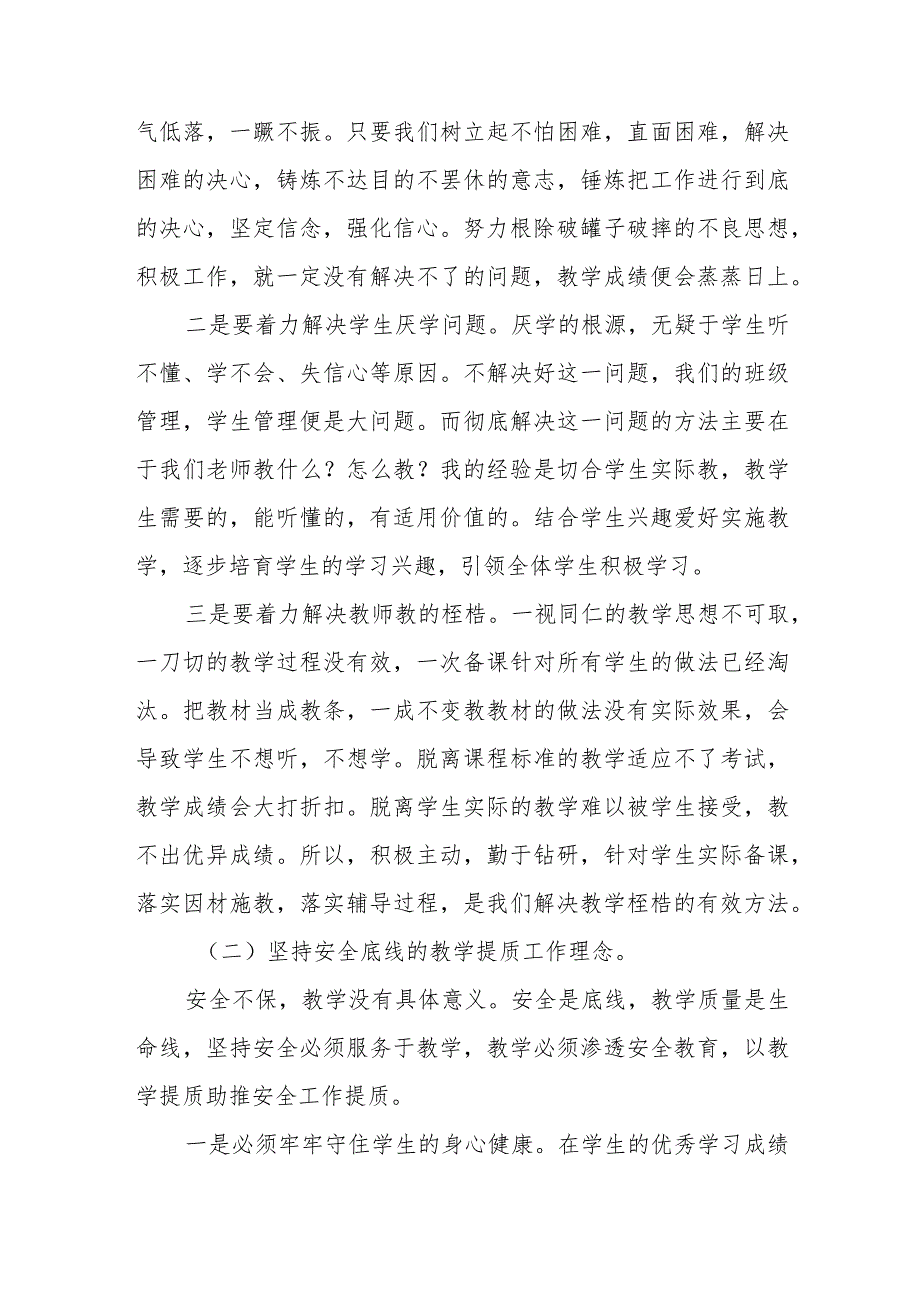 气低落，一蹶不振。只要我们树立起不怕困难，直面困难，解决
困难的决心，铸炼不达目的不罢休的意志，锤炼把工作进行到底
的决心，坚定信念，强化信心。努力根除破罐子破摔的不良思想，
积极工作，就一定没有解决不了的问题，教学成绩便会蒸蒸日上。
二是要着力解决学生厌学问题。厌学的根源，无疑于学生听
不懂、学不会、失信心等原因。不解决好这一问题，我们的班级
管理，学生管理便是大问题。而彻底解决这一问题的方法主要在
于我们老师教什么？怎么教？我的经验是切合学生实际教，教学
生需要的，能听懂的，有适用价值的。结合学生兴趣爱好实施教
学，逐步培育学生的学习兴趣，引领全体学生积极学习。
三是要着力解决教师教的桎梏。一视同仁的教学思想不可取，
一刀切的教学过程没有效，一次备课针对所有学生的做法已经淘
汰。把教材当成教条，一成不变教教材的做法没有实际效果，会
导致学生不想听，不想学。脱离课程标准的教学适应不了考试，
教学成绩会大打折扣。脱离学生实际的教学难以被学生接受，教
不出优异成绩。所以，积极主动，勤于钻研，针对学生实际备课，
落实因材施教，落实辅导过程，是我们解决教学桎梏的有效方法。
（二）坚持安全底线的教学提质工作理念。
安全不保，教学没有具体意义。安全是底线，教学质量是生
命线，坚持安全必须服务于教学，教学必须渗透安全教育，以教
学提质助推安全工作提质。
一是必须牢牢守住学生的身心健康。在学生的优秀学习成绩